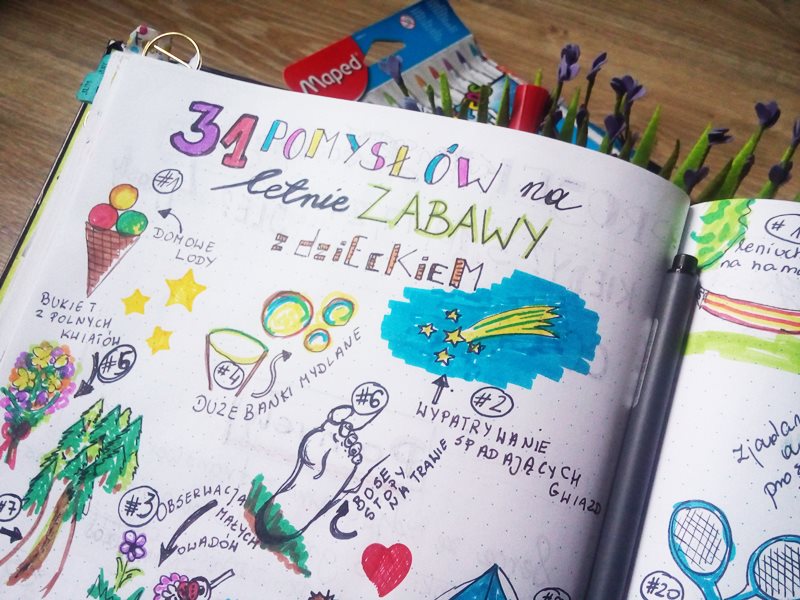 Maped
31 POMYSŁÓW na
letnie ZABAWY
z dzieckiem
#1
DOMOWE
LODY
BUKIET
Z POLNYCH
KWIATÓW
#5
#4
DUŻE BAŃKI MYDLANE
#2
WYPATRYWANIE
SPADAJĄCYCH
GWIAZD
#6
BOSE
STOPY
NA TRAWIE
#3
OBSERWACJA
MAŁYCH
OWADÓW
#7
#1
na ha
zjadan
pro
#20